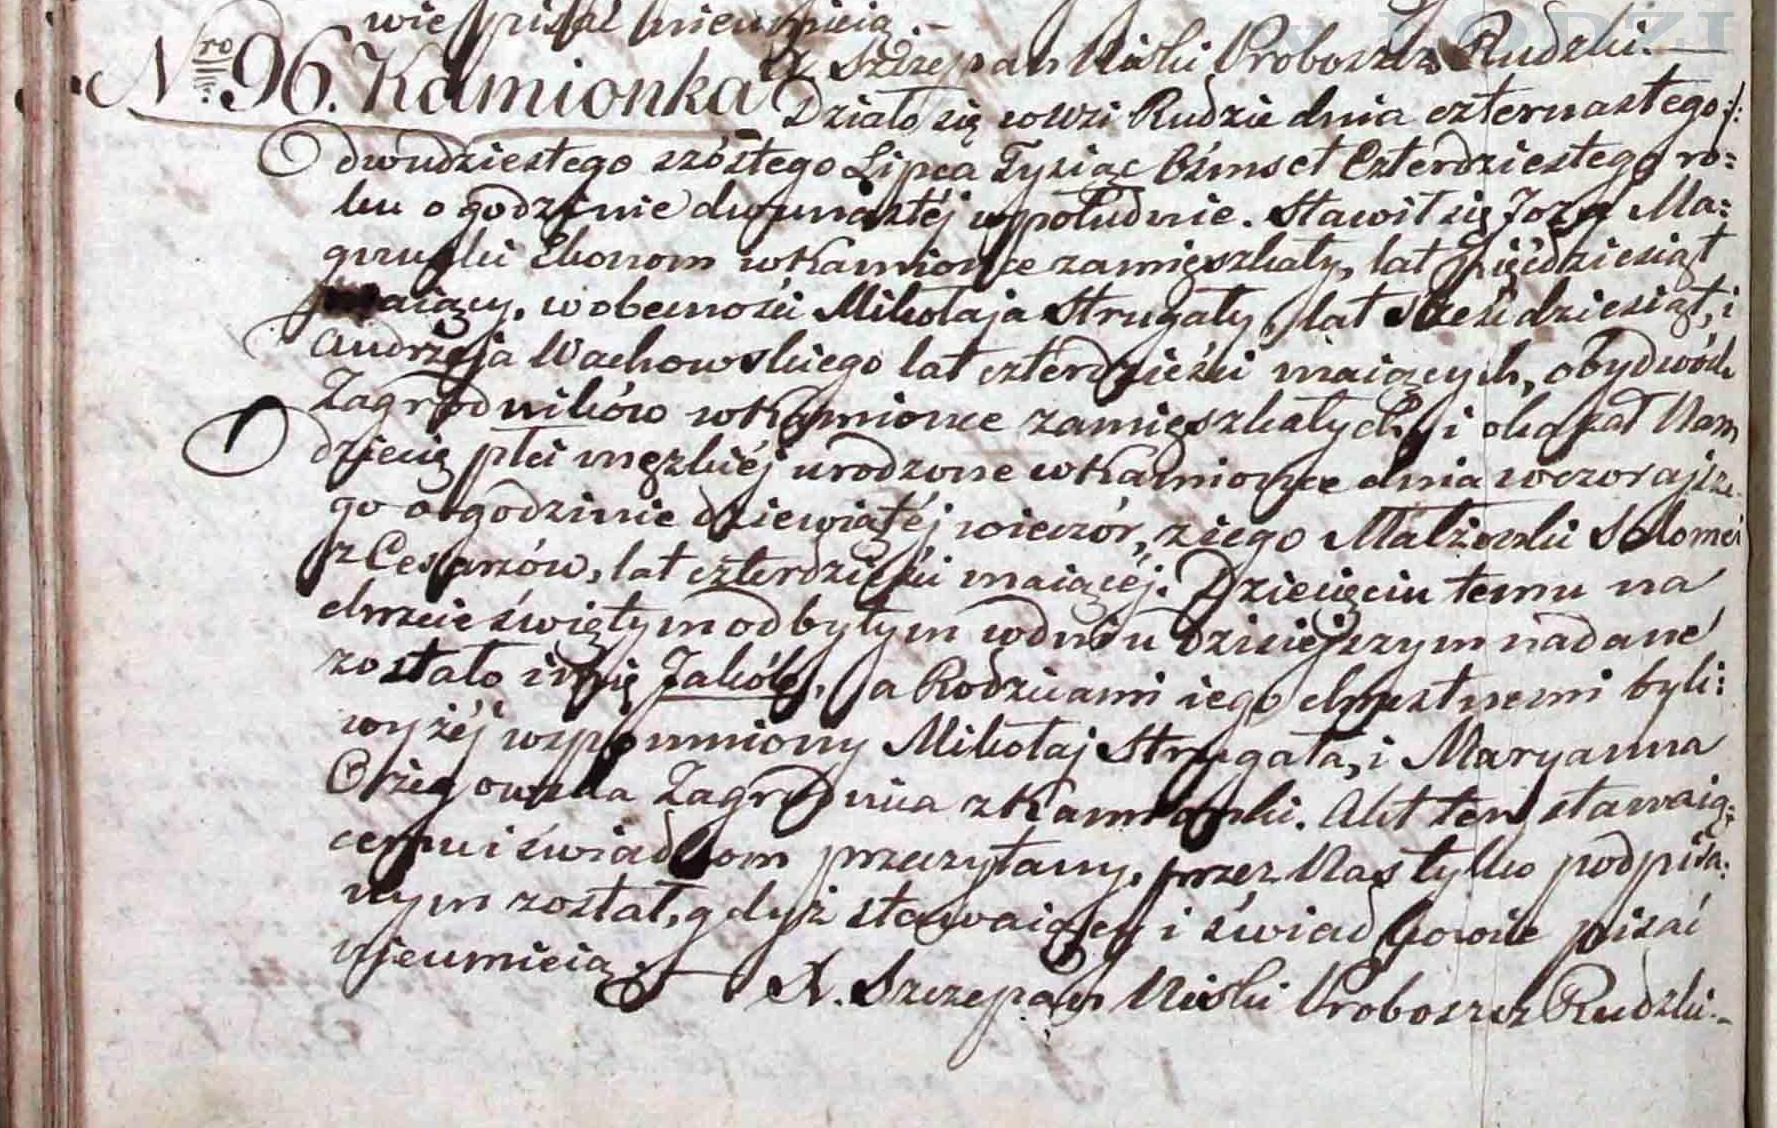 wie pisać nieumieią.
X. Szczepan Nişki Proboszcz Rudzki.
Nro 96. Kamionka Działo się w wsi Rudzie dnia czternastego /:
dwudziestego szóstego Lipca Tysiąc Ośmset Czterdziestego ro:
ku o godzinie dwunastéj w południe. Stawił się Jozef Ma:
Ekonom w Kamionce zamięszkały, lat pięćdziesiąt
maiący, w obecności Mikołaja Strugały, lat sześćdziesiąt, i
Andrzeja Wachowskiego lat czterdzieści maiących, obydwóch
Zagrodników w Kamionce zamięszkałych, i okazał Nam
dziecię płci męzkiéj urodzone w Kamionce dnia wczorajsze:
go o godzinie dziewiątéj wieczór, z iego Małżonki Salomei
z Cesarzów, lat czterdzieści maiącéj. Dziecięciu temu na
chrzcie świętym odbytym w dniu dzisiejszym nadane
zostało imię Jakób, a Rodzicami iego chrzestnemi byli:
wyżéj wspomniony Mikołaj Strugała, i Maryanna
Zagrodnica z Kamionki. Akt ten stawaią:
cemu i świadkom przeczytany, przez Nas tylko podpisa:
nym został, gdyż stawaiący i świadkowie pisać
nieumieią. X. Szczepan Proboszcz Rudzki.